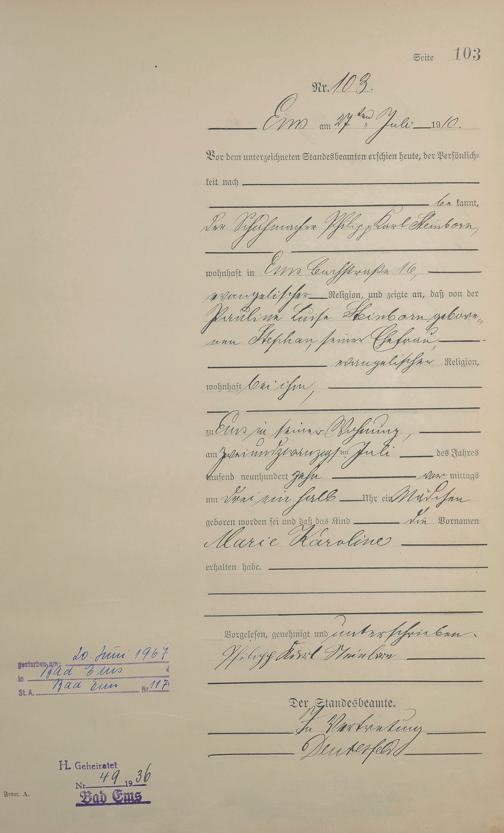 Seite 103
Nr. 103.
Ems am 27ten Juli 1910.
Vor dem unterzeichneten Standesbeamten erschien heute, der Persönlich-
keit nach
bekannt,
der Schuhmacher Philipp Karl Steinborn,
wohnhaft in Ems Bachstraße 16,
evangelischer Religion, und zeigte an, daß von der
Pauline Luise Steinborn gebore-
nen Stephan, seiner Ehefrau,
evangelischer Religion,
wohnhaft bei ihm,
zu Ems in seiner Wohnung,
am zweiundzwanzigsten Juli des Jahres
tausend neunhundert zehn vormittags
um drei ein halb Uhr ein Mädchen
geboren worden sei und daß das Kind die Vornamen
Marie Karoline
erhalten habe.
Vorgelesen, genehmigt und unterschrieben.
Philipp Karl Steinborn
Der Standesbeamte.
In Vertretung
gestorben am: 20 Juni 1967
in Bad Ems
St.A. Bad Ems Nr 117
H. Geheiratet
Nr. 49 1936
Bad Ems
Form. A.